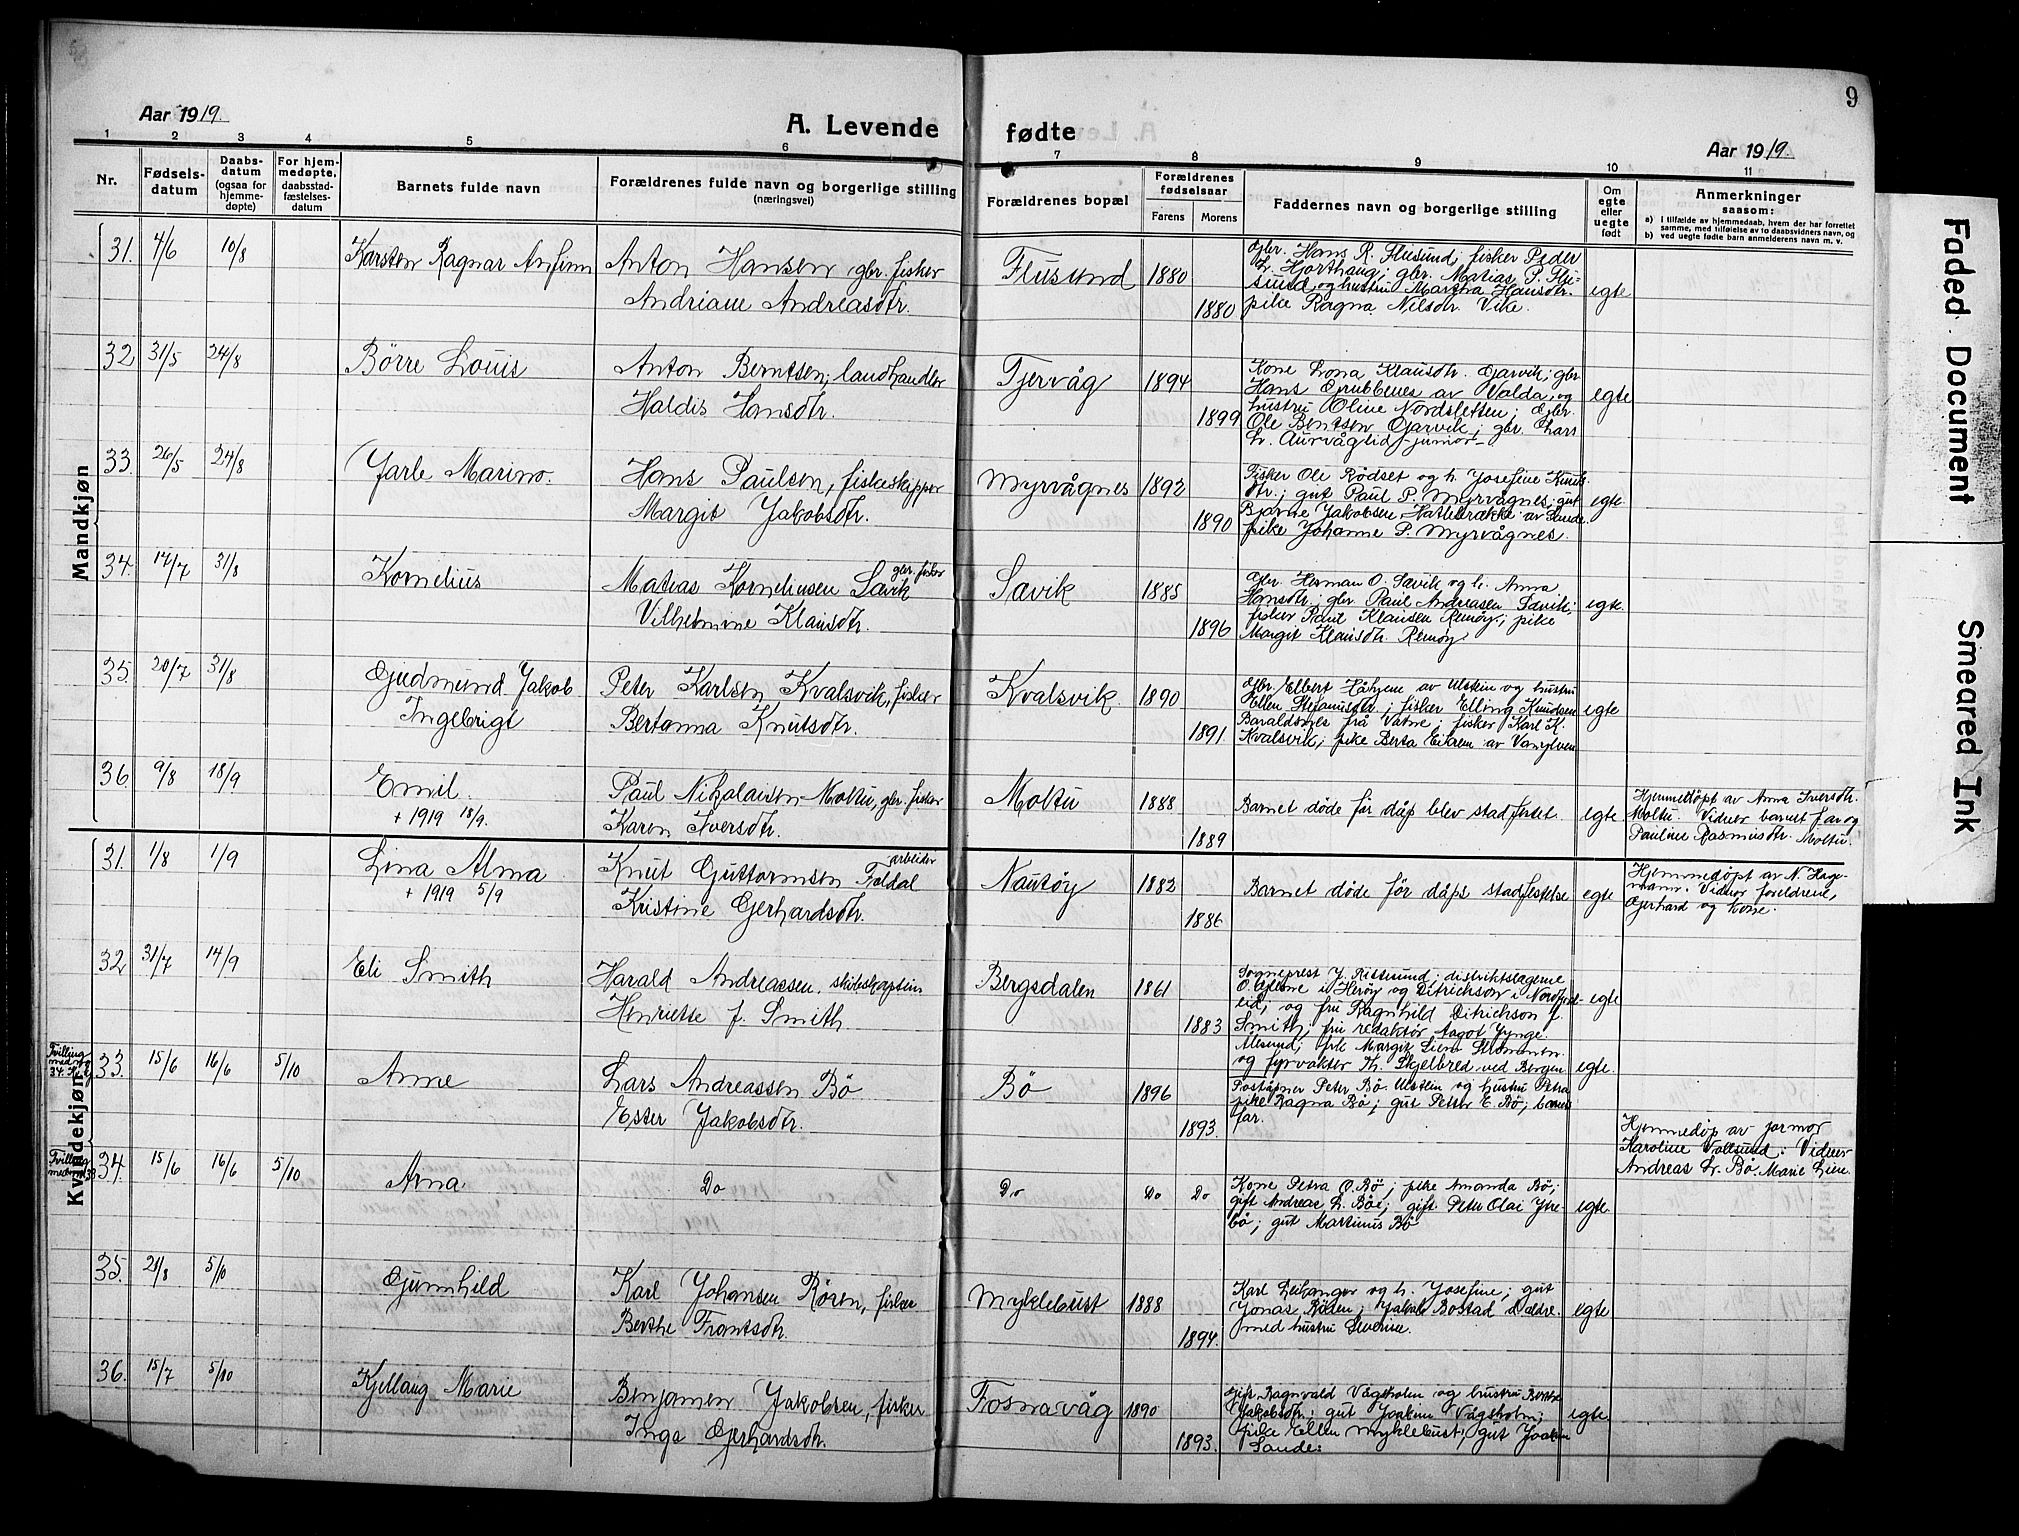 9
Aar 1919.
A. Levende fødte
Aar 1919.
1 2 3 4 5 6 7 8 9 10 11
Nr.
Fødsels-
datum
Daabs-
datum
(ogsaa for
hjemme-
døpte)
For hjem-
medøpte,
daabsstad-
fæstelses-
datum
Barnets fulde navn
Forældrenes fulde navn og borgerlige stilling
(næringsvei)
Forældrenes bopæl
Forældrenes
fødselsaar
Farens
Morens
Faddernes navn og borgerlige stilling
Om
egte
eller
uegte
født
Anmerkninger
saasom:
a) I tilfælde av hjemmedaab, hvem der har forrettet
samme, med tilføielse av to daabsvidners navn, og
b) ved uegte født barn anmelderens navn m. v.
Mandkjøn
31. 4/6 10/8 Karsten Ragnar Anfinn
Anton Hansen, gbr. fisker
Andriane Andreasdtr.
Flusund 1880
1880
Gbr. Hans R. Flusund, fisker Peder
L. Hjorthaug; gbr. Matias P. Flu-
sund og hustru Martha Hansdtr.
pike Ragna Nilsdtr. Vike.
egte
32 31/5 24/8 Børre Louis
Anton Berntsen, landhandler
Haldis Hansdtr.
Tjervåg 1894
1899
Kone Lona Klausdtr. Gjarvik; gbr
Hans Grubbenes av Volda, og
hustru Oline Nordsletten; Gbr.
Ole Bentsen Gjarvik; gbr. Lars
L. Aurvåglid junior
egte
33. 26/5 24/8 Jarle Marino.
Hans Paulsen, fiskeskipper
Margit Jakobsdtr.
Myrvågnes 1892
1890
Fisker Ole Rødset og h. Josefine Knuts
dtr.; gut Paul P. Myrvågnes; gut
Bjarne Jakobsen Hattebrække av Sande
pike Johanne P. Myrvågnes.
egte
34. 14/7 31/8 Kornelius
Matias Korneliusen Sævik gbr. fisker
Vilhelmine Klausdtr.
Sævik 1885
1896
Gbr. Herman O. Sævik og h. Anna
Hansdtr; gbr Paul Andreasen Sævik;
fisker Paul Klausen Remøy; pike
Margit Klausdtr. Remøy
egte.
35. 20/7 31/8 Gudmund Jakob
Ingebrigt
Peter Karlsen Kvalsvik, fisker
Bertanna Knutsdtr.
Kvalsvik. 1890
1891
Gbr. Elbert Håhjem av Ulstein og hustru
Ellen Stefanusdtr; fisker Elling Knudsen
Baraldsnes frå Vatne; fisker Karl K.
Kvalsvik; pike Berta Eikrem av Vanylven
egte
36. 9/8 18/9 Emil.
+ 1919 18/9.
Paul Nikolaisen Moltu, gbr. fisker
Karen Iversdtr.
Moltu 1888
1889
Barnet døde før dåp blev stadfestet.
egte
Hjemmedøpt av Anna Iversdtr.
Moltu. Vidner barnets far og
Pauline Rasmusdtr. Moltu.
Kvindekjøn
31. 1/8 1/9 Lina Alma
+ 1919 5/9
Knut Guttormsen Foldal arbeider
Kristine Gjerhardsdtr.
Nautøy 1882
1886
Barnet døde før dåps stadfestelse
egte
Hjemmedøpt av N. Hage-
mann. Vidner foreldrene,
Gjerhard og Kone.
32 31/7 14/9 Eli Smith
Harald Andreassen, skibskaptein
Henriette f. Smith
Bergsdalen 1861
1883
Sogneprest J. Rittesund; distriktslægerne
O. Gjerne i Herøy og Ditrichson i Nordfjord-
eid; og fru Ragnhild Ditrichson f.
Smith; fru redaktør Aagot Jynge
Ålesund, frk Margit Liem Strømmen
og fyrvakter Th. Skjelbred ved Bergen
egte
Tvilling
med no
34. Kv.kj
33. 15/6 16/6 5/10 Anne
Lars Andreassen Bø
Ester Jakobsdtr.
Bø 1896
1893.
Poståpner Peter Bø Ulstein og hustru Petra
pike Ragna Bø; gut Petter E. Bø; barnets
far.
egte.
Hjemmedøp av jormor
Karoline Vollsund. Vidner
Andreas L. Bø. Marie Line.
Tvilling
med no 33
34. 15/6 16/6 5/10 Arna
Do
Do Do Do
Kone Petra O. Bø; pike Amanda Bø;
gift Andreas L. Bøe; gift. Peter Olai Ytre-
bø; gut Martinus Bø
egte.
35. 21/8 5/10 Gunnhild
Karl Johansen Røren, fisker
Berthe Frantsdtr.
Myklebust 1888
1894.
Karl Leikanger og h. Josefine; gut
Jonas Røren; Jakob Bostad d. ældre
med hustru Severine.
egte
36. 15/7 5/10 Kjellaug Marie
Benjamen Jakobsen, fisker
Inga Gjerhardsdtr.
Fosnavåg 1890
1893.
Gift Ragnvald Vågsholm og hustru Berthe
Jakobsdtr; gut Joakim Vågsholm;
pike Ellen Myklebust; gut Joakim
Sande.
egte.
Faded Document
Smeared Ink